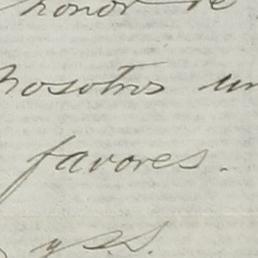 honor de
nosotros un
favores.
y S.S.